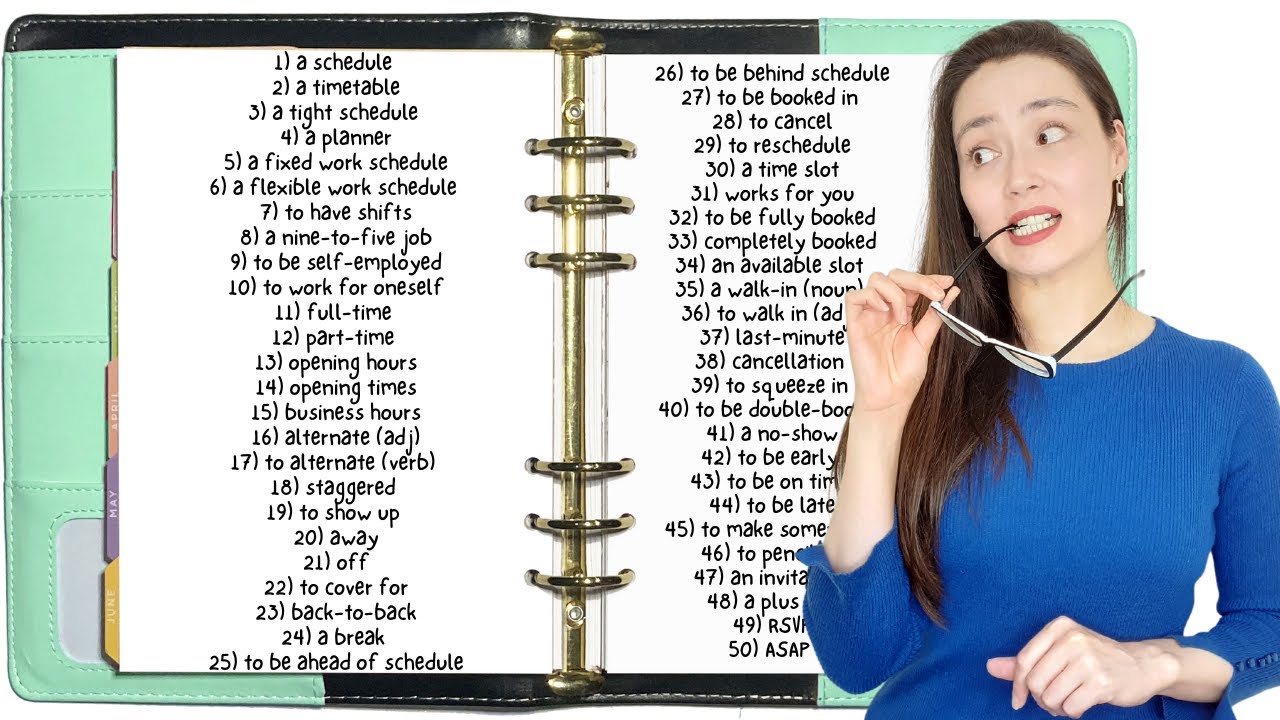 1) a schedule
2) a timetable
3) a tight schedule
4) a planner
5) a fixed work schedule
6) a flexible work schedule
7) to have shifts
8) a nine-to-five job
9) to be self-employed
10) to work for oneself
11) full-time
12) part-time
13) opening hours
14) opening times
15) business hours
16) alternate (adj)
17) to alternate (verb)
18) staggered
19) to show up
20) away
21) off
22) to cover for
23) back-to-back
24) a break
25) to be ahead of schedule
26) to be behind schedule
27) to be booked in
28) to cancel
29) to reschedule
30) a time slot
31) works for you
32) to be fully booked
33) completely booked
34) an available slot
35) a walk-in (noun)
36) to walk in
37) last-minute
38) cancellation
39) to squeeze in
40) to be
41) a no-show
42) to be early
43) to be on
44) to be late
45) to make
46) to
47) an
48) a plus
49)
50) ASAP
APRIL
MAY
JUNE